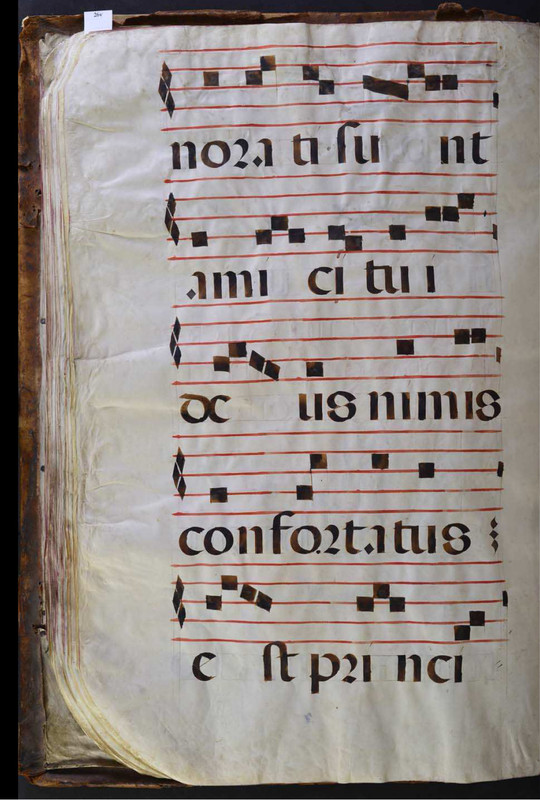 nora ti su nt
ami ci tu i
de us nimis
confortatus
e st pri nci